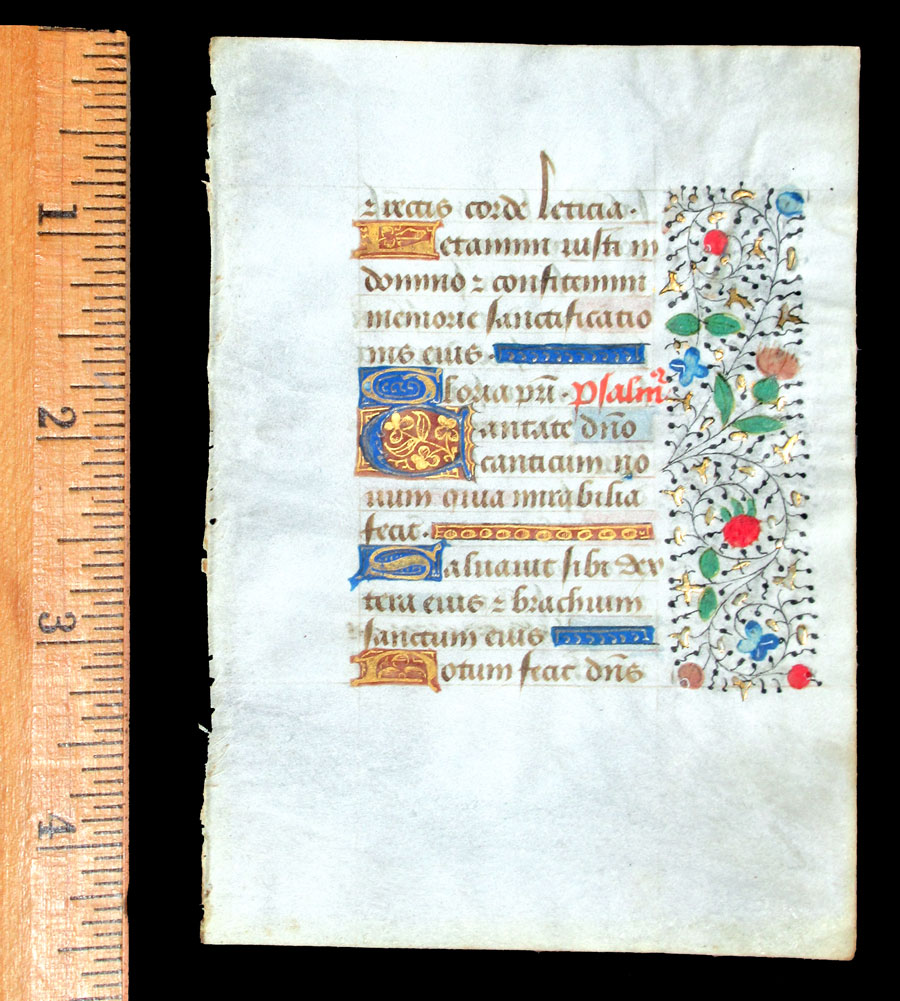 1
2
3
4
⁊ rectis corde leticia.
Letamini iusti in
domino ⁊ confitemini
memorie sanctificatio
nis eius.
Gloria pr̄i. psalm⁹
Cantate dn̄o
canticum no
uum quia mirabilia
fecit.
Saluauit sibi dex
tera eius ⁊ brachium
sanctum eius
Notum fecit dn̄s